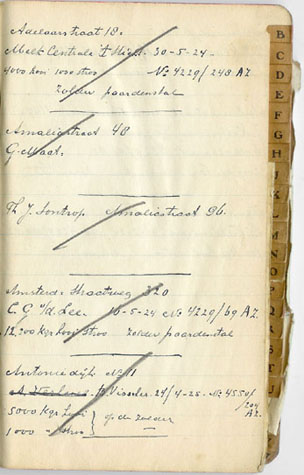 Adelaarstraat 18.
Melk Centrale 't Hicht. 30-5-24-
4000 hooi 1000 stroo No 4229/248 AZ
Zolder paardenstal
Amaliastraat 48
G. Maat.
Th. J. Sontrop Amaliastraat 96.
Amsterd. Straatweg 320
C. G. v/d Lee 10-5-24 No 4229/69 AZ.
12,500 kgr hooi stroo Zolder paardenstal
Antoniedijk No 11
Visscher. 24/4-25- No 4550/
AZ.
5000 kgr hooi
1000 " stroo } op de zolder
B
C
D
E
F
G
H
J
K
L
M
N
O
P
Q
R
S
T